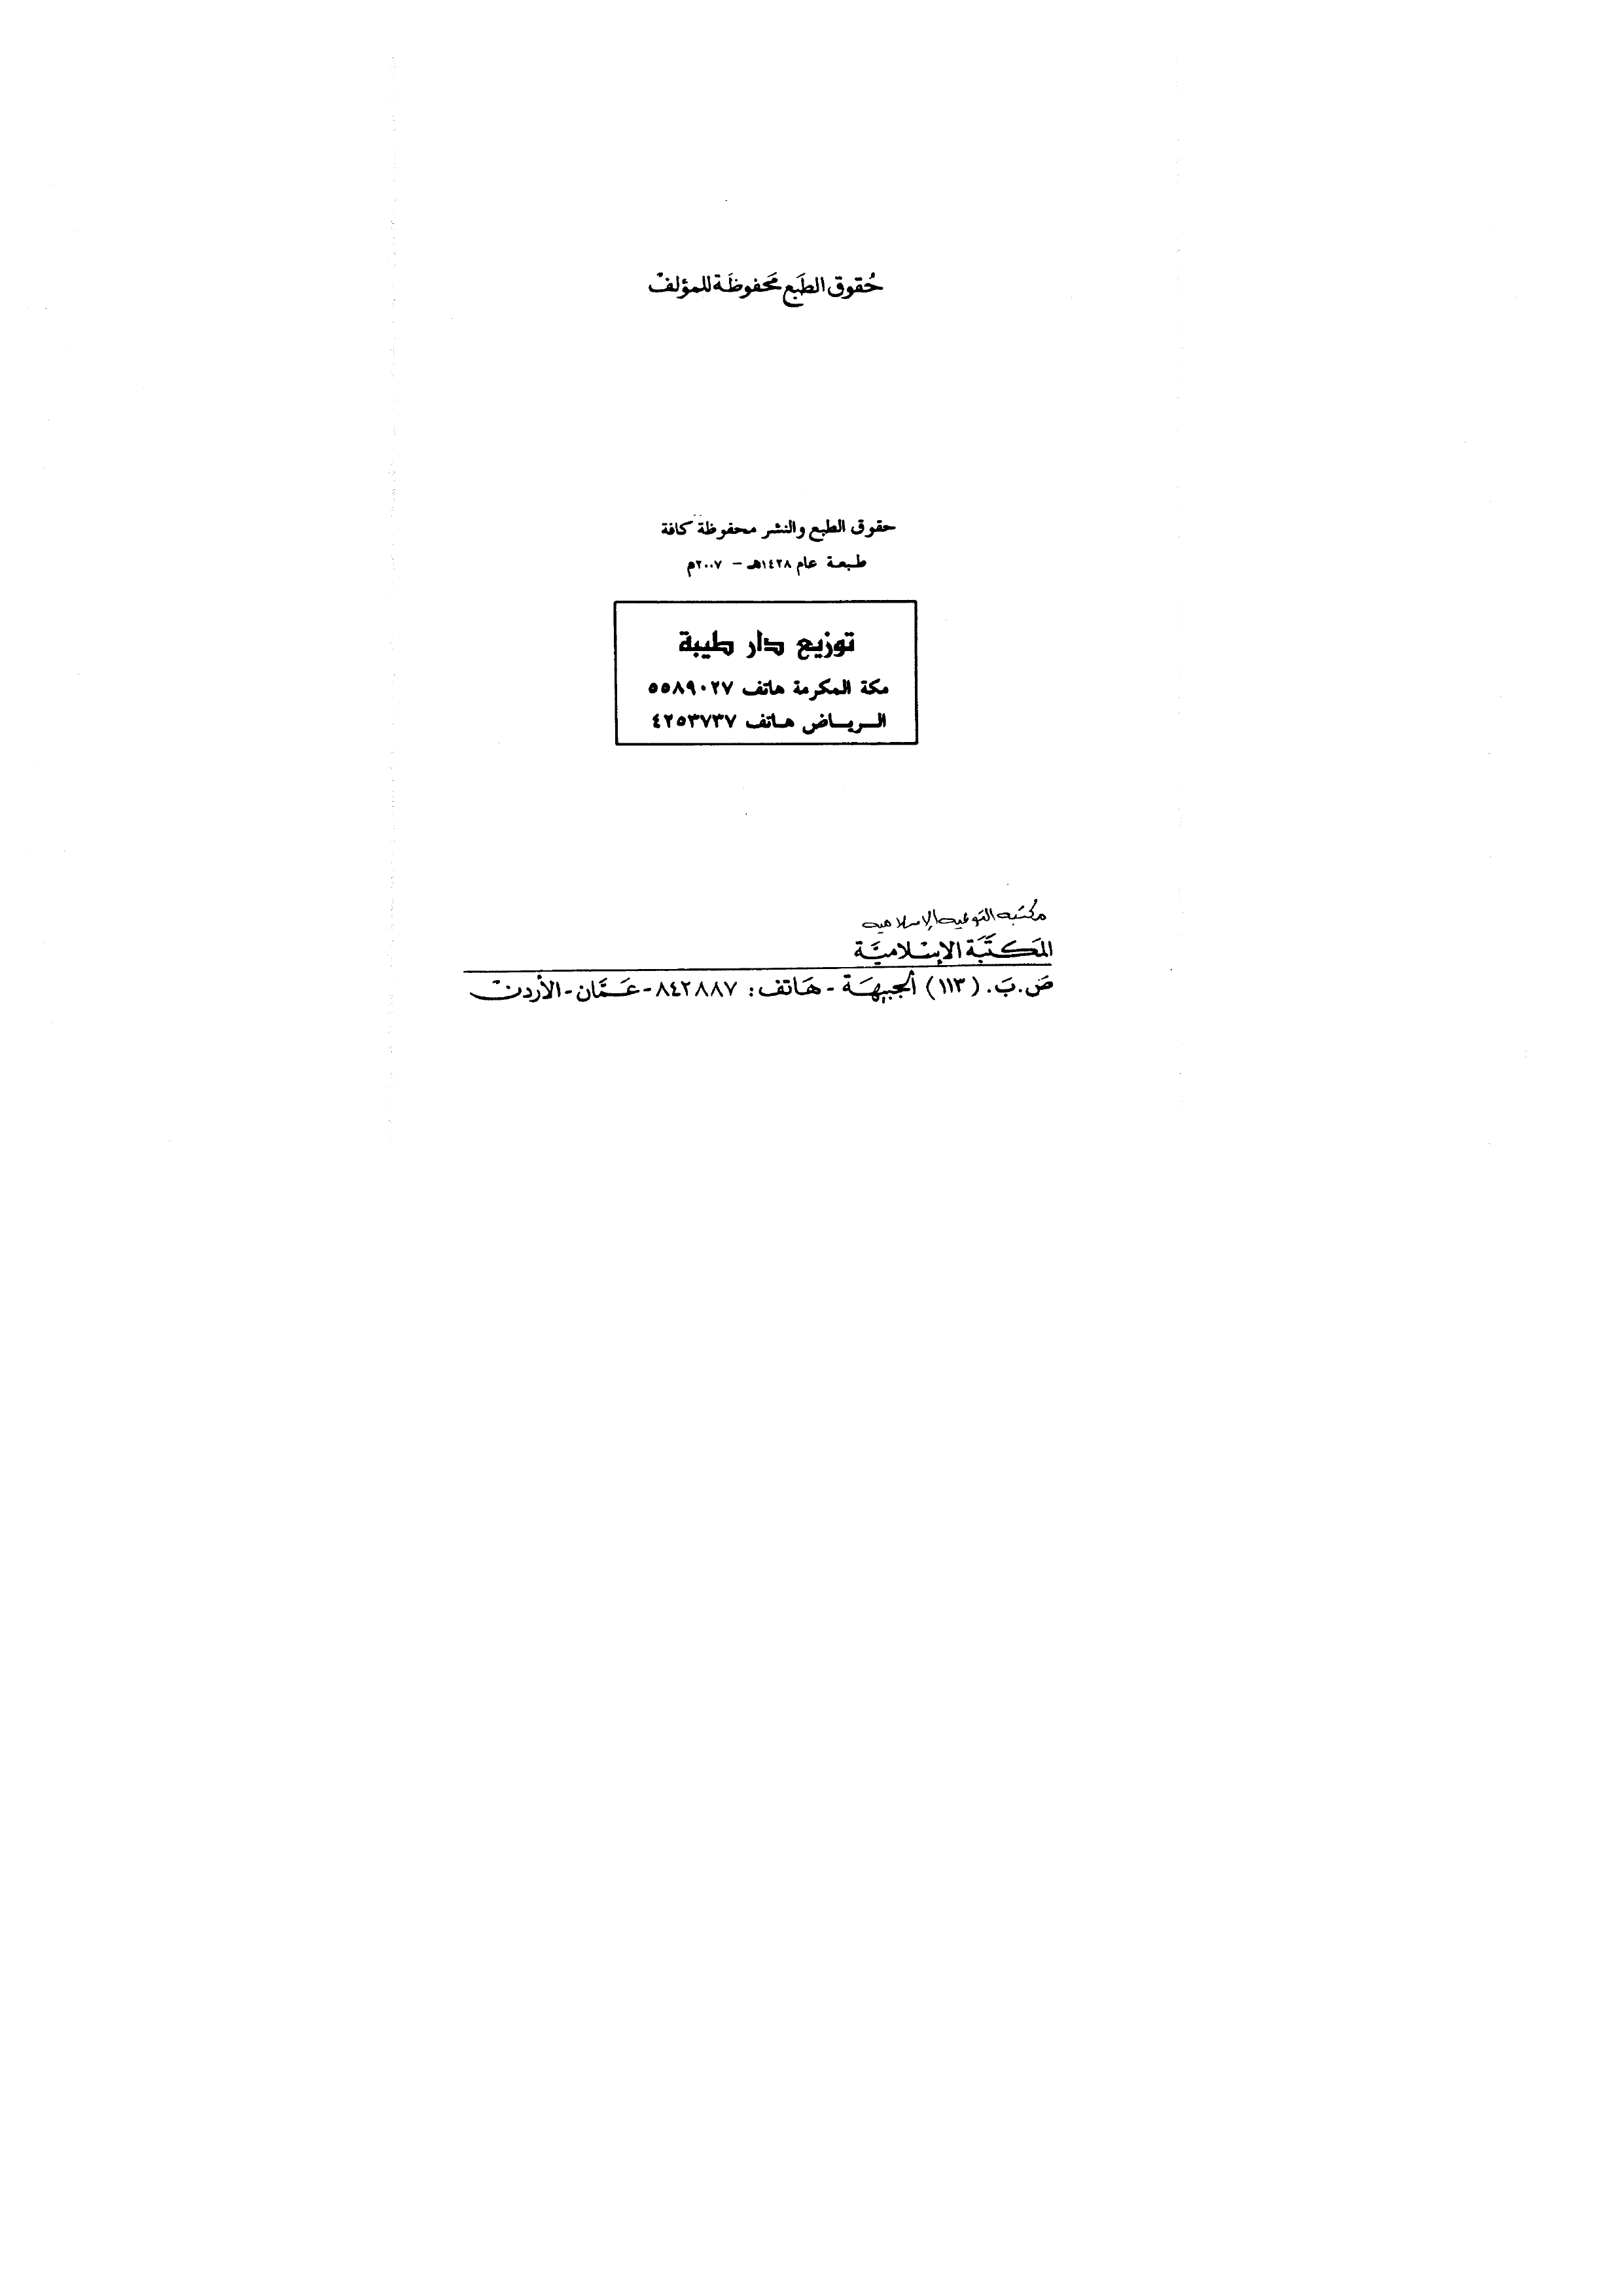 حُقوق الطَبع مَحفوظَة للمؤلفْ
حقوق الطبع والنشر محفوظة كافة
طبعة عام ١٤٢٨هـ – ٢٠٠٧م
توزيع دار طيبة
مكة المكرمة هاتف ٥٥٨٩٠٢٧
الريـاض هـاتف ٤٢٥٣٧٣٧
مكتبة التوعية الإسلامية
المَكتَبَة الإسْلاميَّة
صَ.بَ. (١١٣) الجبيهَة - هَاتف: ٨٤٢٨٨٧ - عَمَّان - الأردنْ